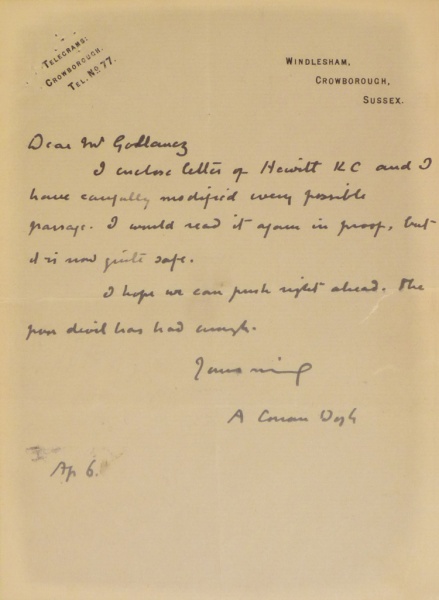 TELEGRAMS:
CROWBOROUGH.
TEL. No 77.
WINDLESHAM,
CROWBOROUGH,
SUSSEX.
Dear Mr Gollancz
I enclose letter of Hewitt KC and I
have carefully modified every possible
passage. I would read it again in proof, but
it is now quite safe.
I hope we can push right ahead. The
poor devil has had enough.
Yours
A Conan Doyle
Ap 6.